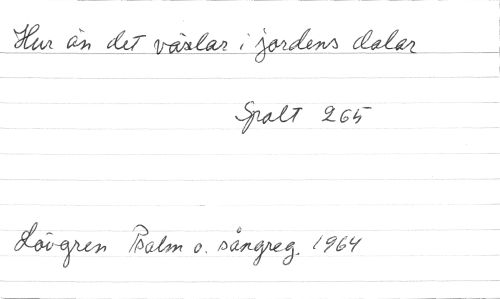 Hur än det växlar i jordens dalar
Spalt 265
Lövgren Psalm o. sångreg. 1964